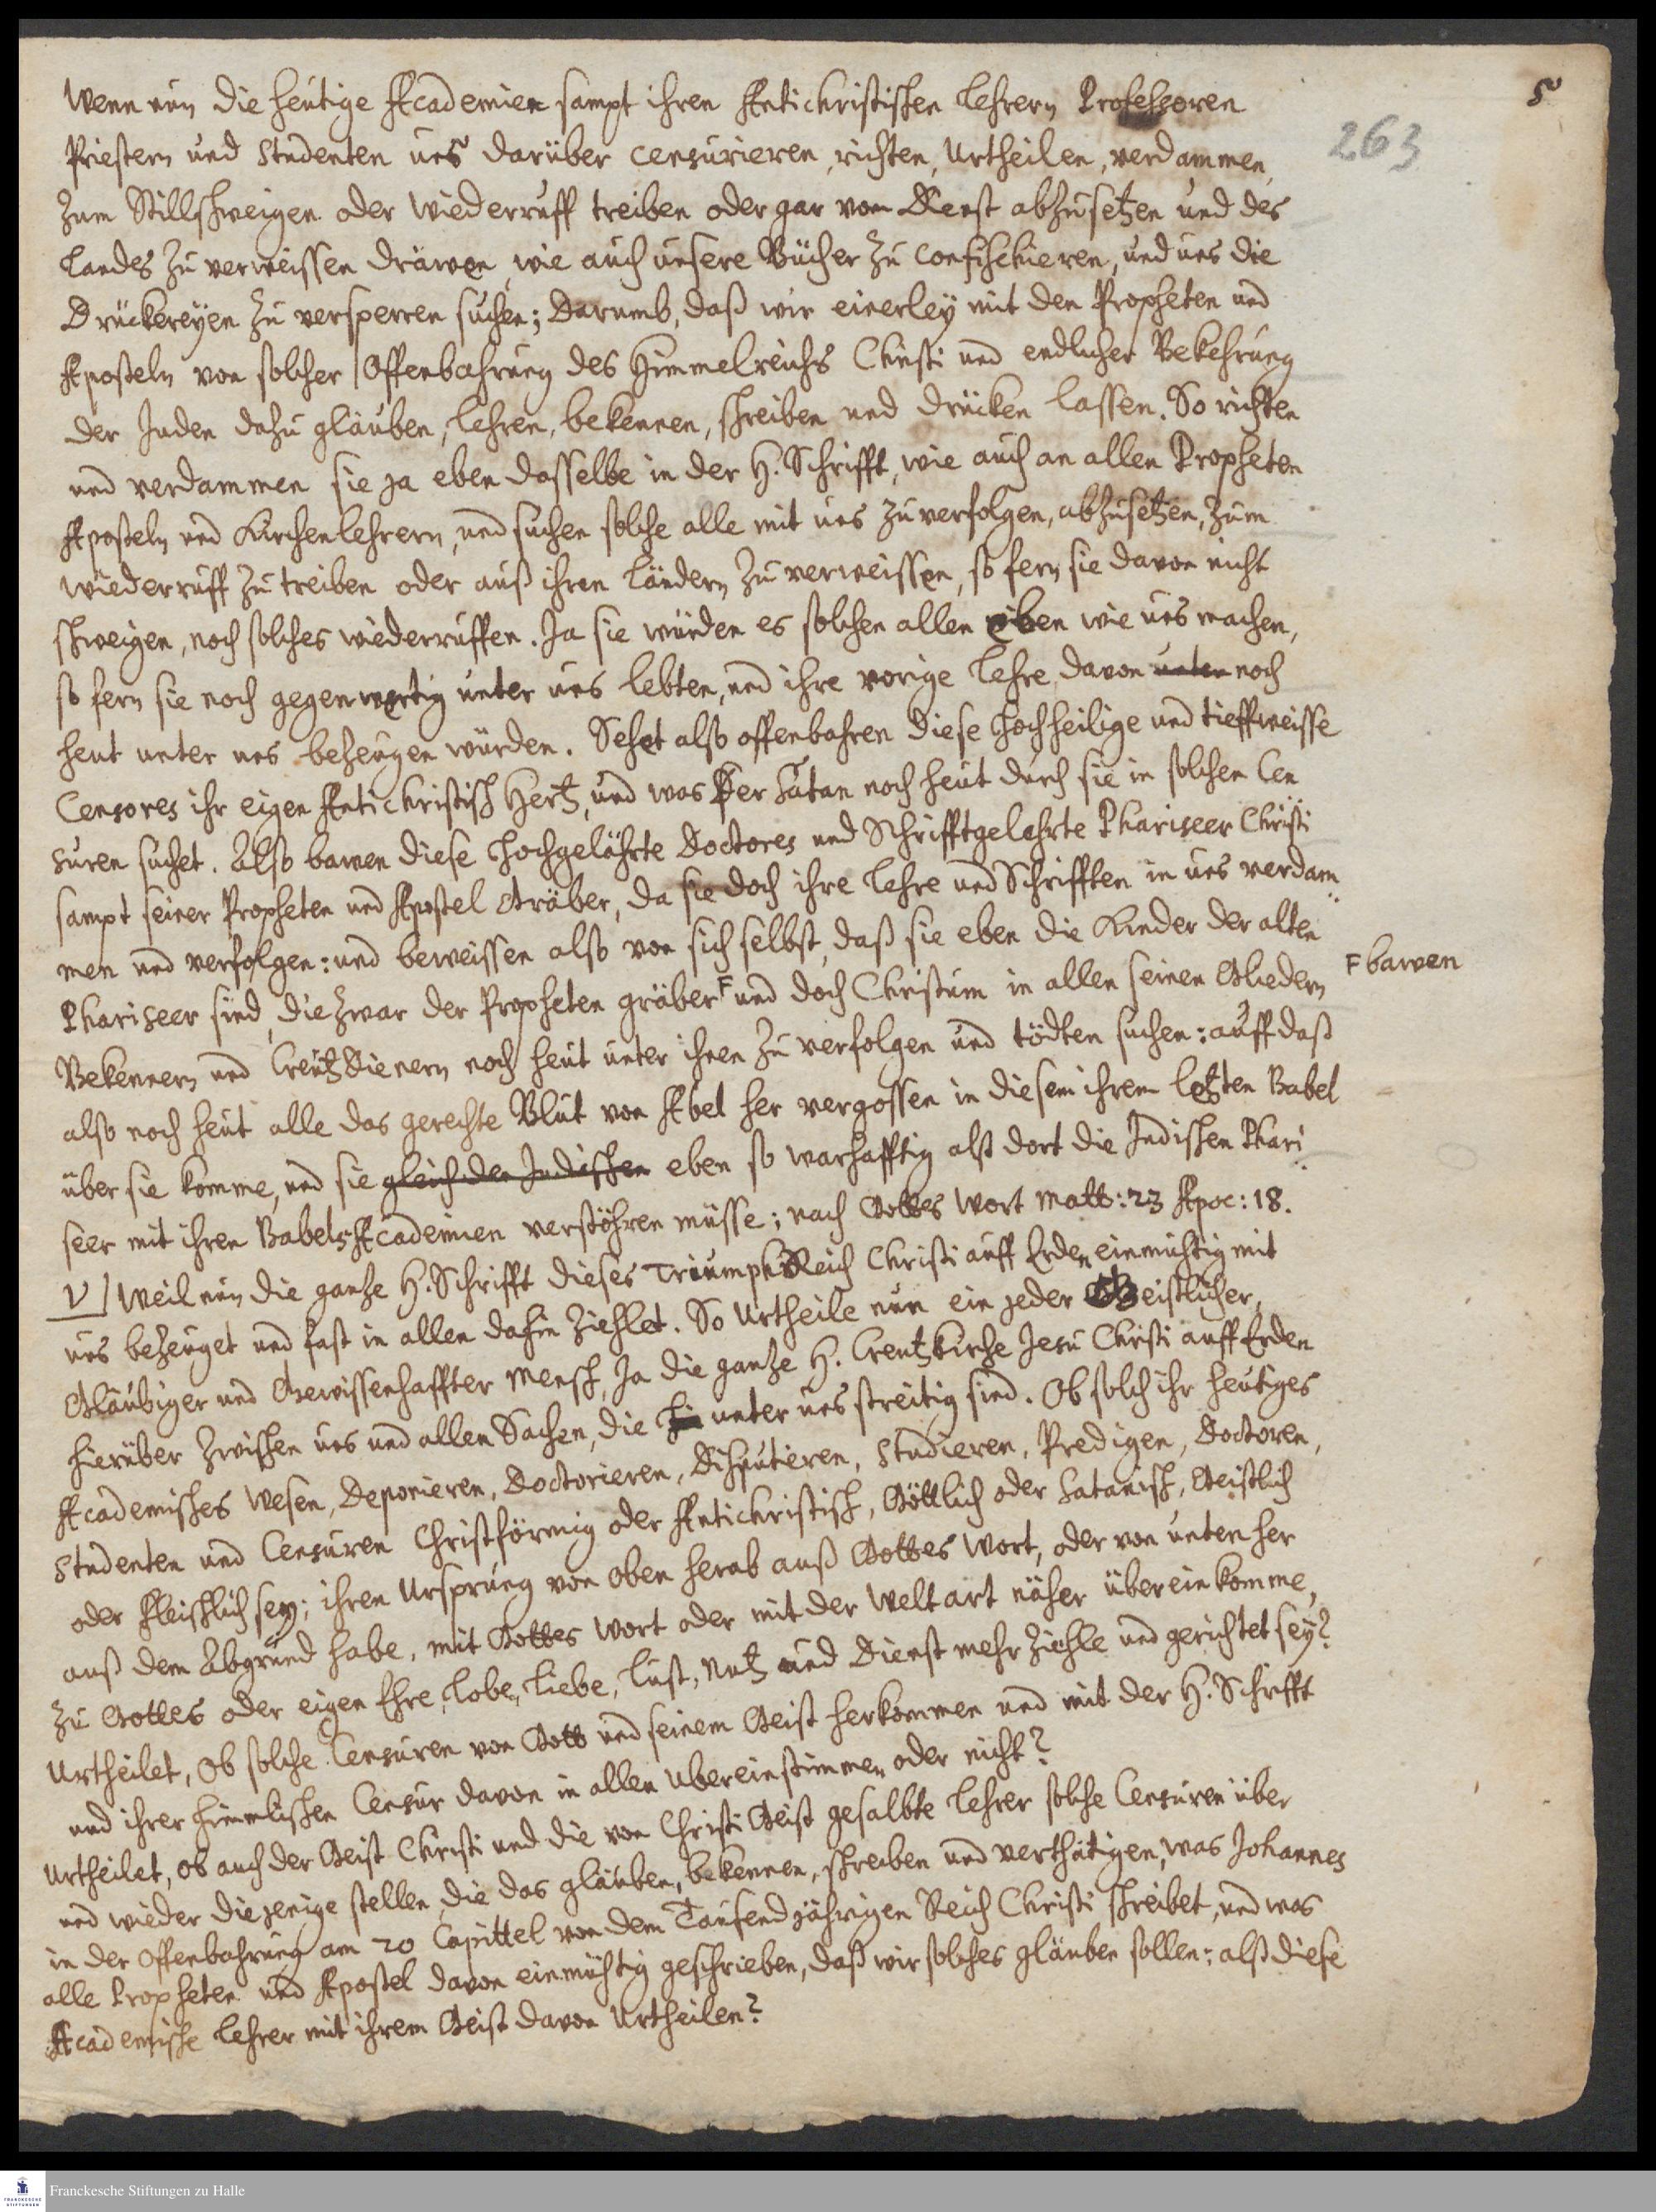 5
263
Wenn nun die heutige Academien sampt ihren Antichristischen Lehrern Professoren
Priestern und Studenten uns darüber censurieren, richten, Urtheilen, verdammen,
zum Stillschweigen oder Wiederruff treiben oder gar vom Dienst abzusetzen und des
Landes zu verweissen dräwen, wie auch unsere Bücher zu confischieren, und uns die
Drückereyen zu versperren suchen; Darumb, daß wir einerley mit den Propheten und
Aposteln von solcher Offenbahrung des Himmelreichs Christi und endlicher Bekehrung
der Juden dazu gläuben, lehren, bekennen, schreiben und drücken lassen. So richten
und verdammen sie ja eben dasselbe in der H. Schrifft, wie auch an allen Propheten
Aposteln und Kirchenlehrern, und suchen solche alle mit uns zu verfolgen, abzusetzen, zum
wiederruff zu treiben oder auß ihren Ländern zu verweissen, so fern sie davon nicht
schweigen, noch solches wiederruffen. Ja sie würden es solchen allen eben wie uns machen,
so fern sie noch gegenwertig unter uns lebten, und ihre vorige Lehre davon unter noch
heut unter uns bezeugen würden. Sehet also offenbahren diese Hochheilige und tieffweisse
Censores ihr eigen Antichristisch Hertz, und was Der Satan noch heut durch sie in solchen Cen
suren suchet. Also bawen diese Hochgelährte Doctores und Schrifftgelehrte Phariseer Christi
sampt seiner Propheten und Apostel Gräber, da sie doch ihre Lehre und Schrifften in uns verdam¨
men und verfolgen: und beweissen also von sich selbst, daß sie eben die Kinder der alten
Phariseer sind, die zwar der Propheten gräber F und doch Christum in allen seinen Gliedern
F bawen
Bekennern und Creutzdienern noch heut unter ihnen zu verfolgen und tödten suchen: auff daß
also noch heut alle das gerechte Blut von Abel her vergossen in diesem ihrem letzten Babel
über sie komme, und sie gleich den Jüdischen eben so warhafftig alß dort die Jüdischen Phari
seer mit ihren Babels Academien verstöhren müsse; nach Gottes Wort Matt: 23 Apoc: 18.
V Weil nun die gantze H. Schrifft dieses Triumph Reich Christi auff Erden einmühtig mit
uns bezeuget und fast in allen dahin ziehlet. So Urtheile nun ein jeder Geistlicher,
Gläubiger und Gewissenhaffter Mensch, Ja die gantze H. Creutzkirche Jesu Christi auff Erden
hierüber zwischen uns und allen Sachen, die unter uns streitig sind. Ob solch ihr heutiges
Academisches Wesen, Deponieren, Doctorieren, Disputieren, Studieren, Predigen, Doctoren,
Studenten und Censuren Christförmig oder Antichristisch, Göttlich oder Satanisch, Geistlich
oder Fleischlich sey; ihren Ursprung von oben herab auß Gottes Wort, oder von unten her
auß dem Abgrund habe, mit Gottes Wort oder mit der Welt art näher überein komme,
zu Gottes oder eigen Ehre, Lobe, Liebe, Lust, Nutz und Dienst mehr ziehle und gerichtet sey?
Urtheilet, Ob solche Censuren von Gott und seinem Geist herkommen und mit der H. Schrifft
und ihrer himmlischen Censur davon in allen Ubereinstimmen oder nicht?
Urtheilet, ob auch der Geist Christi und die von Christi Geist gesalbte Lehrer solche Censuren über
und wieder diejenige stellen, die das gläuben, bekennen, schreiben und verthätigen, was Johannes
in der Offenbahrung am 20 Capittel von dem Tausendjährigen Reich Christi schreibet, und was
alle Propheten und Apostel davon einmühtig geschrieben, daß wir solches gläuben sollen: alß diese
Academische Lehrer mit ihrem Geist davon Urtheilen?
FRANCKESCHE STIFTUNGEN
Franckesche Stiftungen zu Halle